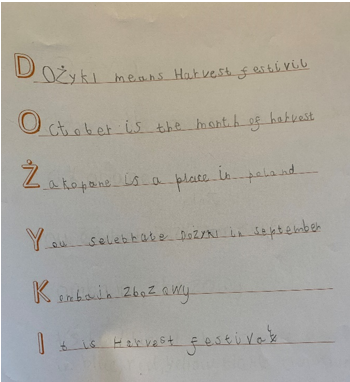 DOŻYKI means Harvest festivil
October is the month of harvest
Żakopane is a place in poland
You selebrate Dozyki in september
Kombain zbozowy
It is Harvest festival